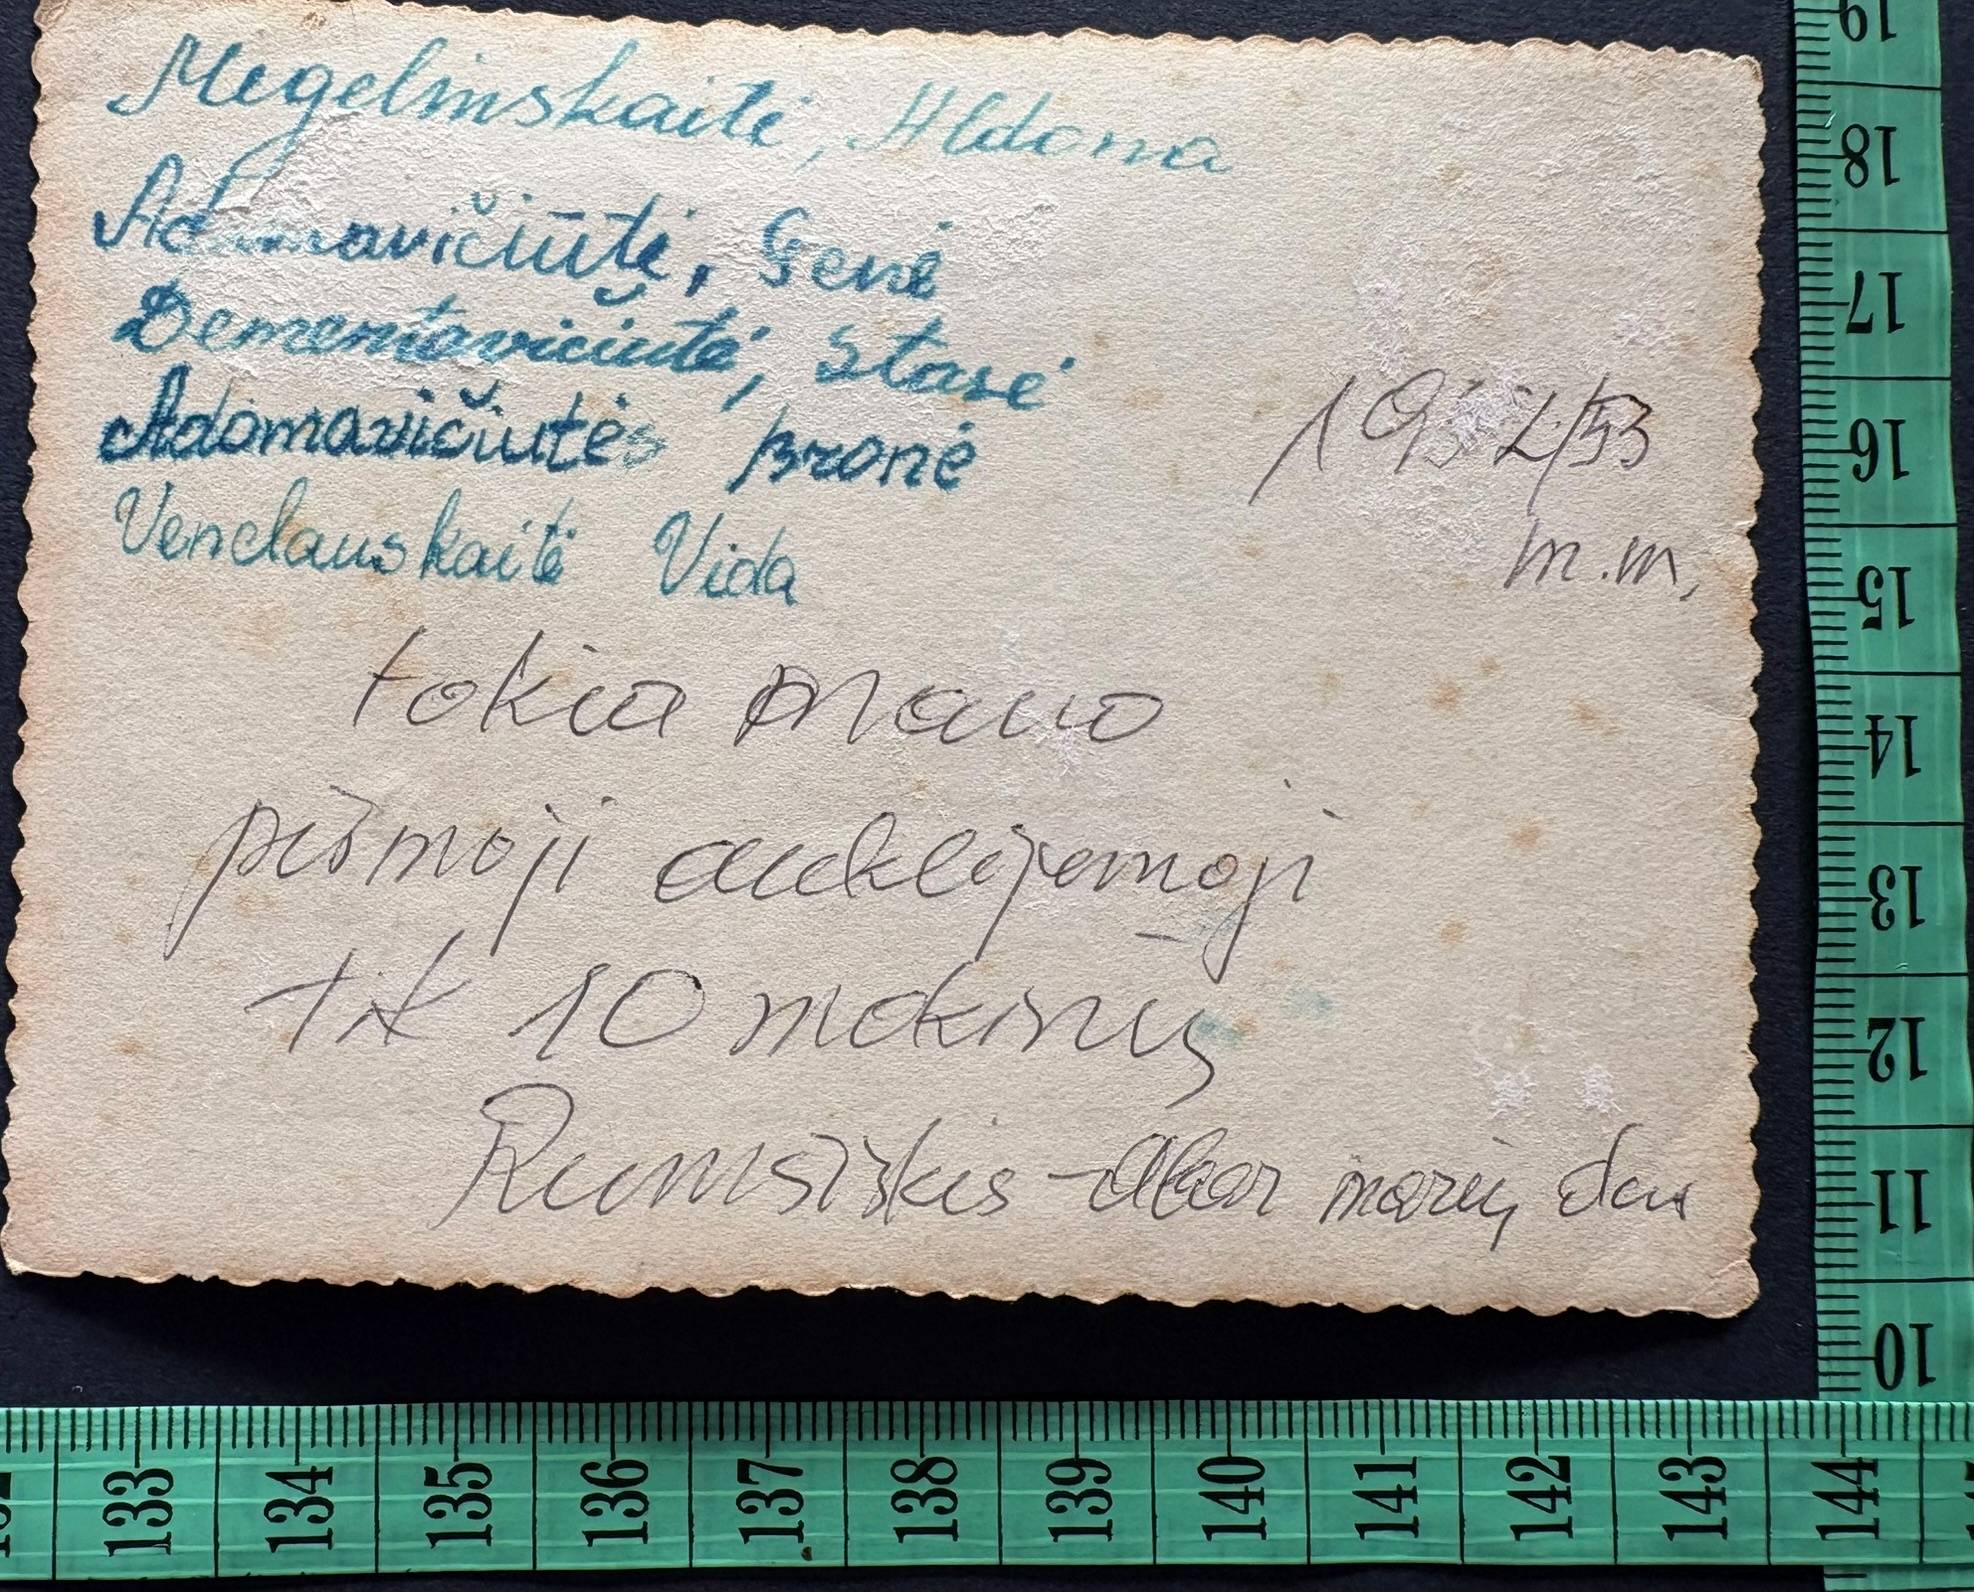 Megelinskaitė, Aldona
Adamavičiūtė, Genė
Dementavičiutė, Stasė
Adomavičiutės Bronė
Venclauskaitė Vida
1952/53
m.m.
tokia mano
pirmoji auklėjamoji
tik 10 mokinių
Rumšiškės - dbar marių
19
18
17
16
15
14
13
12
11
10
133
134
135
136
137
138
139
140
141
142
143
144